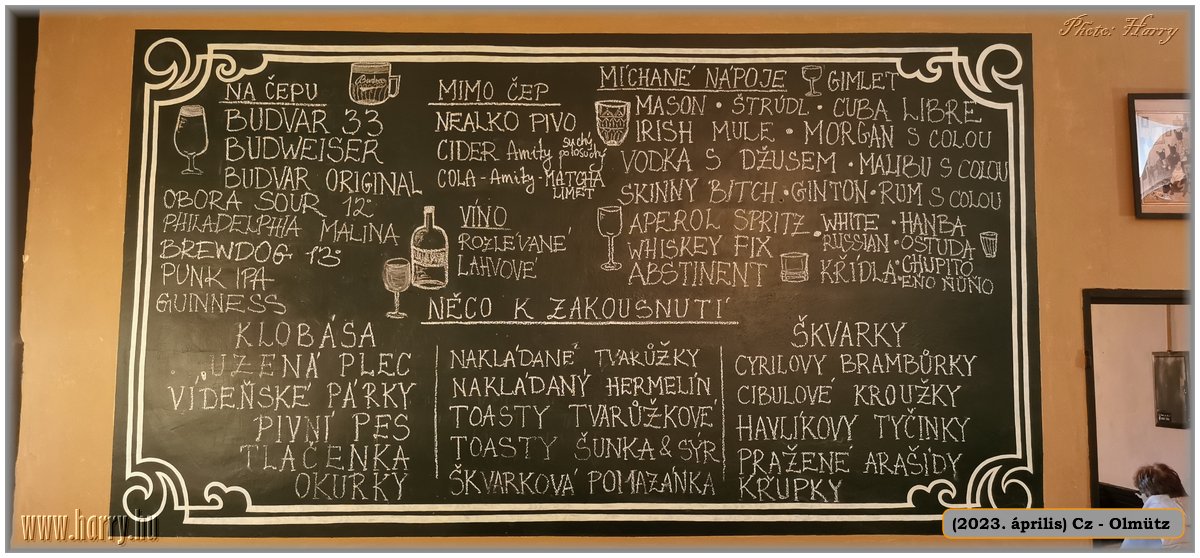 Photo: Harry
NA ČEPU
BUDVAR 33
BUDWEISER
BUDVAR ORIGINAL
OBORA SOUR 12°
PHILADELPHIA MALINA
BREWDOG 13°
PUNK IPA
GUINNESS
MIMO ČEP
NEALKO PIVO
CIDER Amity suchý polosuchý
COLA - Amity - MATCHA
LIMET
VÍNO
ROZLÉVANÉ
LAHVOVÉ
MÍCHANÉ NÁPOJE
GIMLET
MASON • ŠTRÚDL • CUBA LIBRE
IRISH MULE • MORGAN S COLOU
VODKA S DŽUSEM • MALIBU S COLOU
SKINNY BITCH • GINTON • RUM S COLOU
APEROL SPRITZ
WHISKEY FIX
ABSTINENT
WHITE RUSSIAN
KŘÍDLA
• HANBA
• OSTUDA
• CHUPITO
EŇO ŇUŇO
NĚCO K ZAKOUSNUTÍ
KLOBÁSA
UZENÁ PLEC
VÍDEŇSKÉ PÁRKY
PIVNÍ PES
TLAČENKA
OKURKY
NAKLÁDANÉ TVARŮŽKY
NAKLÁDANÝ HERMELÍN
TOASTY TVARŮŽKOVÉ
TOASTY ŠUNKA & SÝR
ŠKVARKOVÁ POMAZÁNKA
ŠKVARKY
CYRILOVY BRAMBŮRKY
CIBULOVÉ KROUŽKY
HAVLÍKOVY TYČINKY
PRAŽENÉ ARAŠÍDY
KŘUPKY
www.harry.hu
(2023. április) Cz - Olmütz